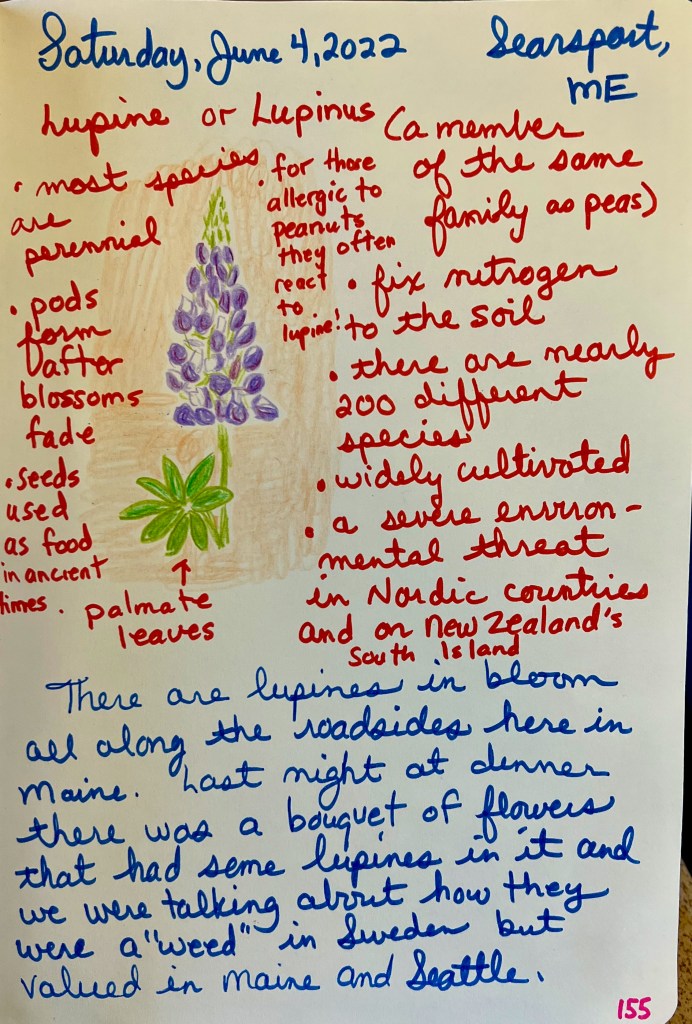 Saturday, June 4, 2022 Searsport,
ME
Lupine or Lupinus (a member
of the same
family as peas)
• most species
are
perennial
• pods
form
after
blossoms
fade
• seeds
used
as food
in ancient
times.
• for those
allergic to
peanuts
they often
react
to
lupine!
palmate
leaves
• fix nitrogen
to the soil
• there are nearly
200 different
species
• widely cultivated
• a severe environ-
mental threat
in Nordic countries
and on New Zealand's
South Island
There are lupines in bloom
all along the roadsides here in
Maine. Last night at dinner
there was a bouquet of flowers
that had some lupines in it and
we were talking about how they
were a "weed" in Sweden but
valued in Maine and Seattle.
155